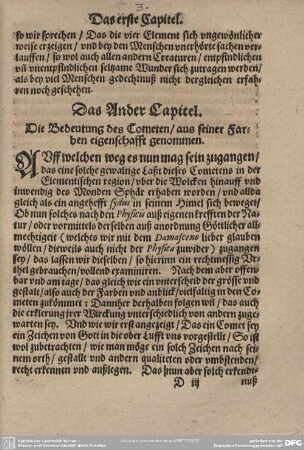 3.
Das erste Capitel.
so wir sprechen / Das die vier Element sich vngewönlicher
weise erzeigen / vnd bey den Menschen vnerhörte sachen ver-
lauffen / so wol auch allen andern Creaturen / entpfindlichen
vñ vnentpfindlichen seltzame Wunder sich zutragen werden /
als bey viel Menschen gedechtnuß nicht dergleichen erfah-
ren noch geschehen.
Das Ander Capitel.
Die Bedeutung des Cometen / aus seiner Far-
ben eigenschafft genommen.
AUff welchen weg es nun mag sein zugangen /
das eine solche gewaltige Last dieses Cometens in der
Elementischen region / vber die Wolcken hinauff vnd
inwendig des Monden Sphær erhaben worden / vnd allda
gleich als ein angehefft sydus in seinem Himel sich beweget /
Ob nun solches nach den Physicis auß eigenen krefften der Na-
tur / oder vormittels derselben auß anordnung Göttlicher all-
mechtigkeit (welches wir mit dem Damasceno lieber glauben
wöllen / dieweils auch nicht der Physica zuwider) zugangen
sey / das lassen wir dieselben / so hierinn ein rechtmessig Vr-
theil gebrauchen / vollend examiniren. Nach dem aber offen-
bar vnd am tage / das gleich wie ein vnterscheid der grösse vnd
gestalt / also auch der Farben vnd anblick / vielfaltig in den Co-
meten zukömmet: Dannher derhalben folgen wil / das auch
die erklerung jrer Wirckung vnterschiedlich von andern zuge-
warten sey. Vnd wie wir erst angezeigt / Das ein Comet sey
ein Zeichen von Gott in die ober Lufft vns vorgestellt / So ist
wol zubetrachten / wie man möge ein solch Zeichen nach sei-
nem orth / gestalt vnd andern qualiteten oder vmbstenden /
recht erkennen vnd außlegen. Das nun aber solch erkendt-
D iij nuß
DFG